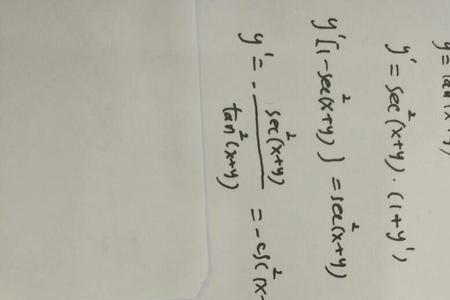 y = tan(x+y)
y' = sec²(x+y) · (1+y')
y'[1-sec²(x+y)] = sec²(x+y)
y' = - sec²(x+y) / tan²(x+y) = -csc²(x+